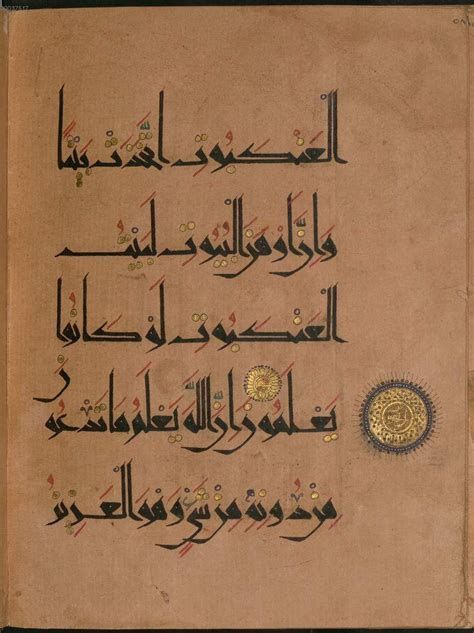 الْعَنكَبُوتِ اتَّخَذَتْ بَيْتًا
وَإِنَّ أَوْهَنَ الْبُيُوتِ لَبَيْتُ
الْعَنكَبُوتِ لَوْ كَانُوا
يَعْلَمُونَ إِنَّ اللَّهَ يَعْلَمُ مَا تَدْعُونَ
مِن دُونِهِ مِن شَيْءٍ وَهُوَ الْعَزِيزُ